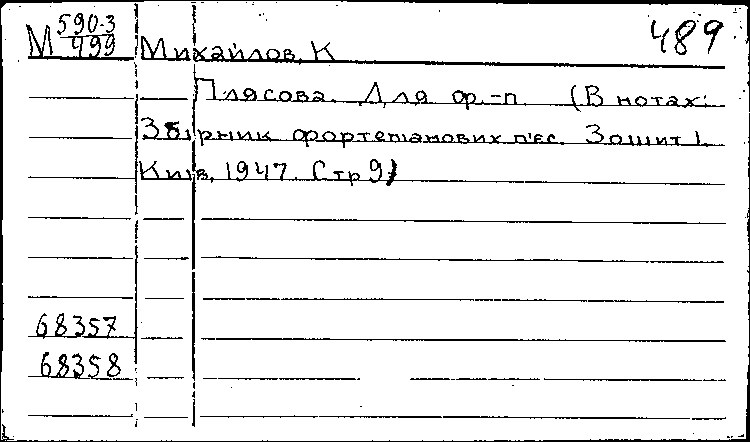 М 590-3/499 Михайлов, К 489
Плясова. Для ф.-п. (В нотах:
Збірник фортепіанових п'єс. Зошит 1.
Київ, 1947. Стр 9)
68357
68358